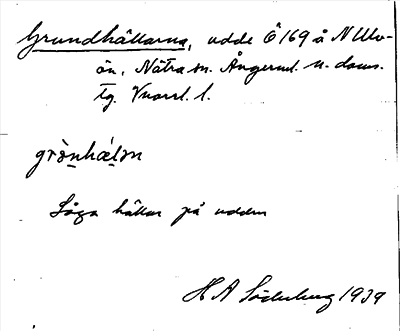 Grundhällarna, udde Ö 169 å N Ulv-
ön, Nätra sn. Ångerml. n. doms.
tg. Vnorrl. l.
Låga hällar på udden
H A Söderberg 1939